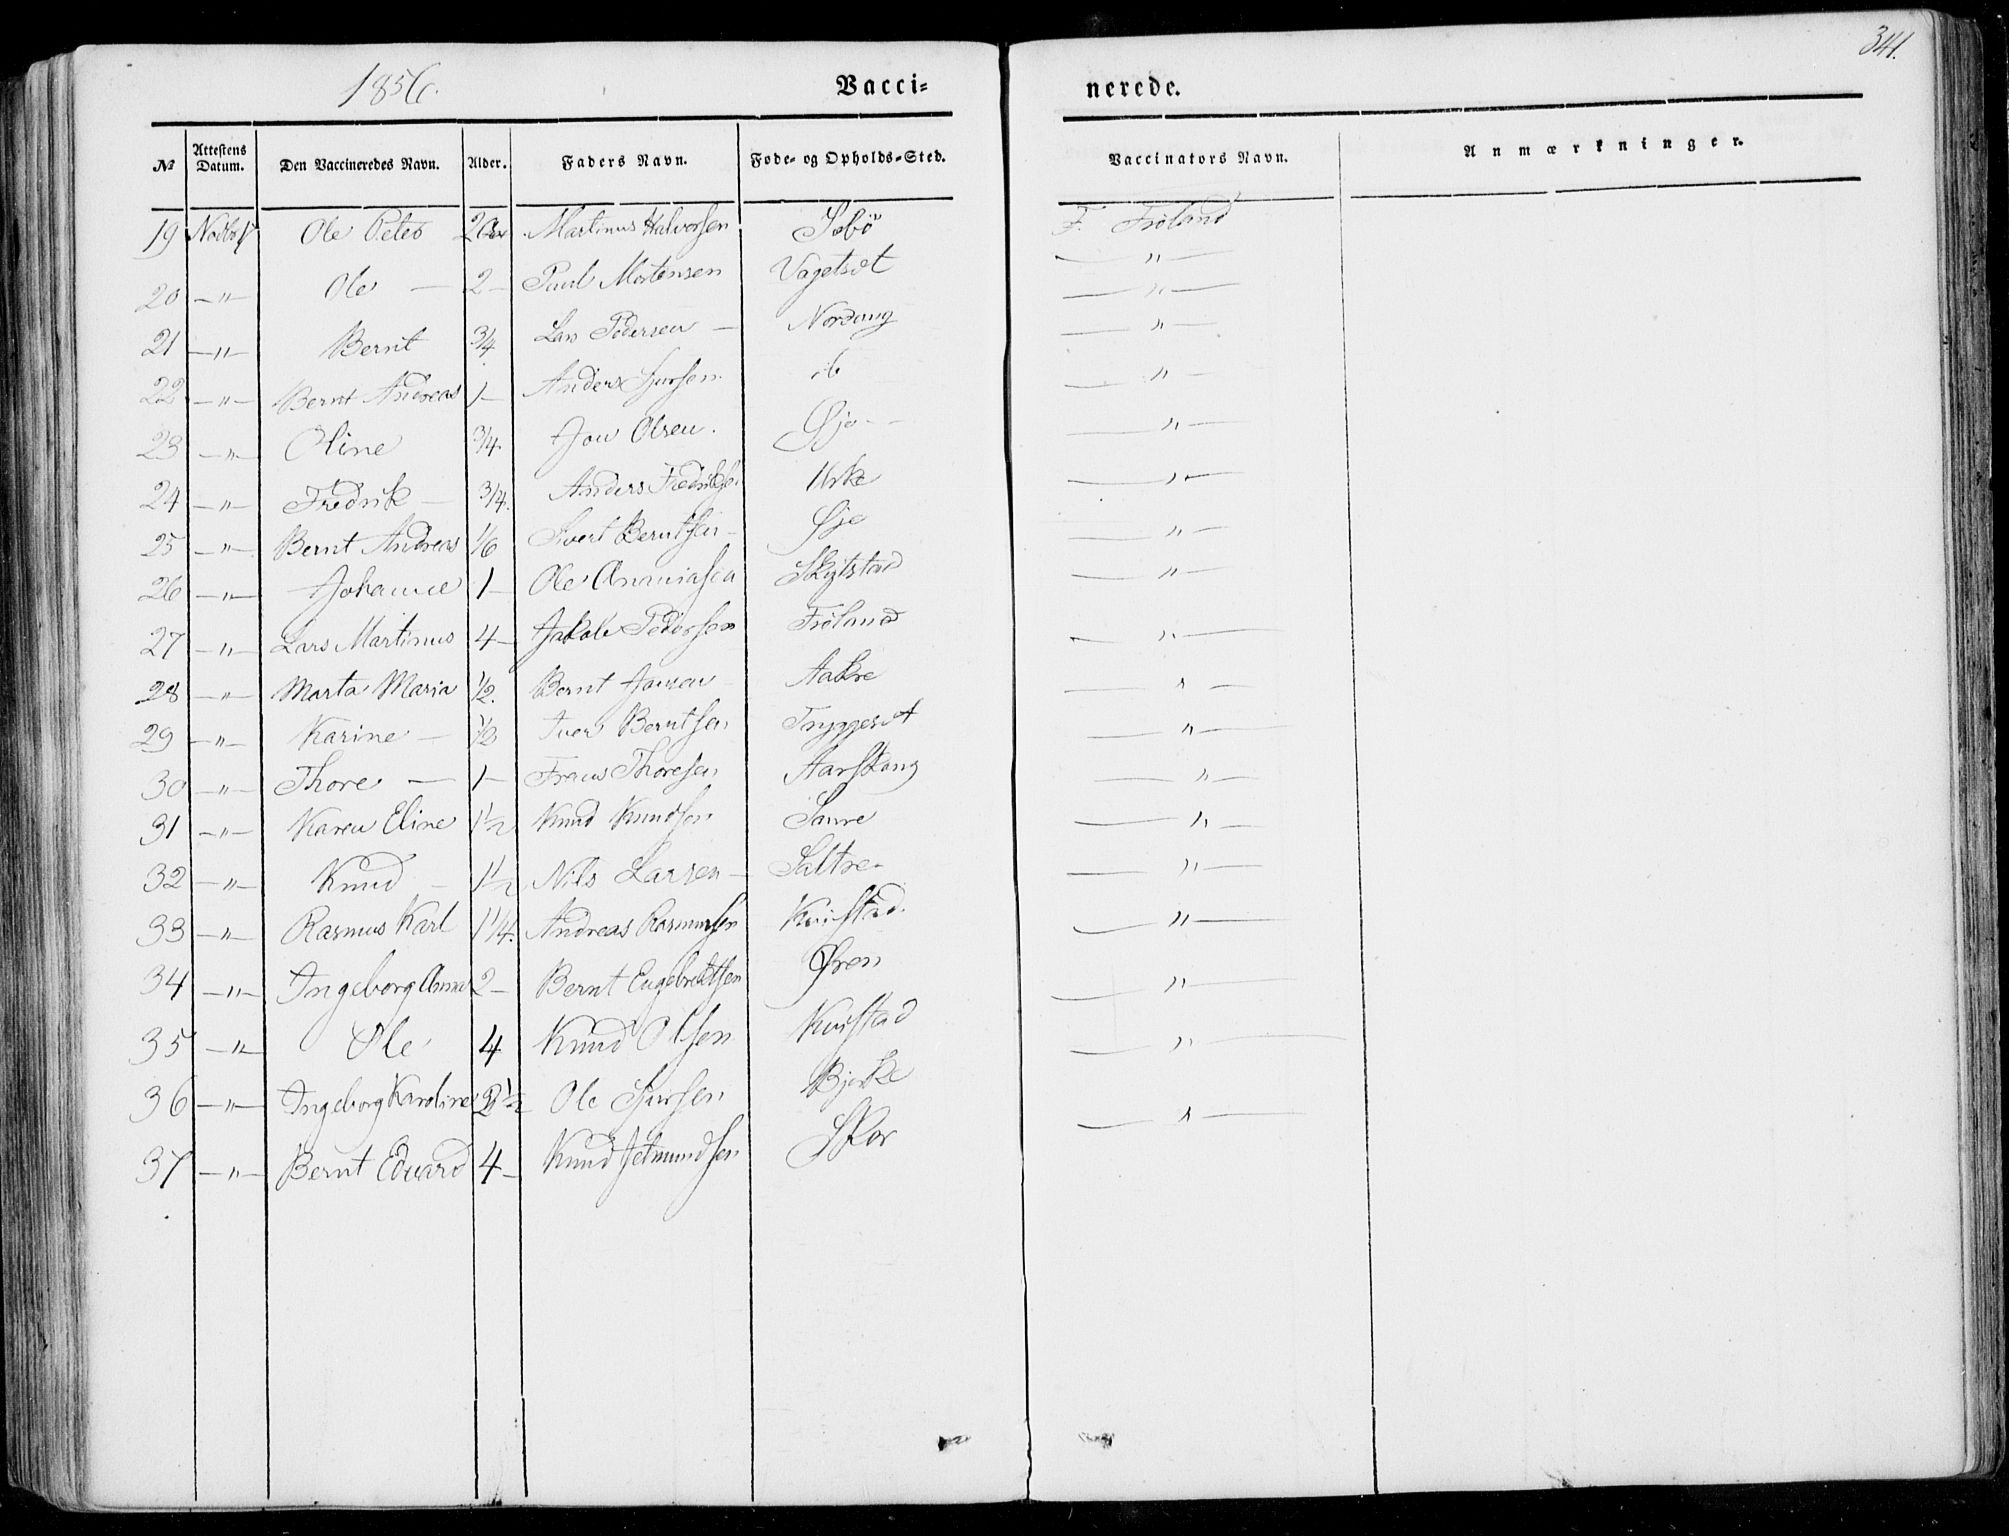 341.
1856.
Vacci-
nerede.
№ Attestens Datum. Den Vaccineredes Navn. Alder. Faders Navn. Føde- og Opholds-Sted. Vaccinators Navn. Anmærkninger.
19 Ole Peter 2 Martinus Halvorsen Sæbö F. Fröland
20 —"— Ole — 2 — Paul Mortensen — " —
21 —"— Bernt 3/4 Lars Pedersen — Nordang — " —
22 —"— Bernt Andreas 1 — Anders Sjursen ib — " —
23 —"— Oline 3/4. Jon Olsen. Øje — — " —
24 —"— Fredrik — 3/4. Anders Fredriksen Urke — " —
25 —"— Bernt Andreas 1/6 Sivert Berntsen — Øje — " —
26 —"— Johanne 1 — Ole Ananiasen Skylstad — " —
27 —"— Lars Martinus 4 — Jakob Pedersen Fröland — " —
28 —"— Marta Maria 1/2. Bernt Jonsen — Aakre — " —
29 —"— Karine — 1/2 Iver Berntsen Tryggeset — " —
30 —"— Thore — 1 — Frans Thoresen Aarskoug — " —
31 —"— Karen Eline 1 1/2 Knud Knudsen Saure — " —
32 —"— Knud — 1 1/2 Nils Larsen — Saltre — " —
33 —"— Rasmus Karl 1 1/4. Andreas Rasmussen Kvistad. — " —
34 —"— Ingeborg Anna 2 — Bernt Engebretsen Øren — " —
35 —"— Ole 4 Knud Olsen Kvistad — " —
36 —"— Ingeborg Karoline 2 1/2 Ole Sjursen Bjerke — " —
37 —"— Bernt Edvard 4 — Knud Jetmundsen Skor